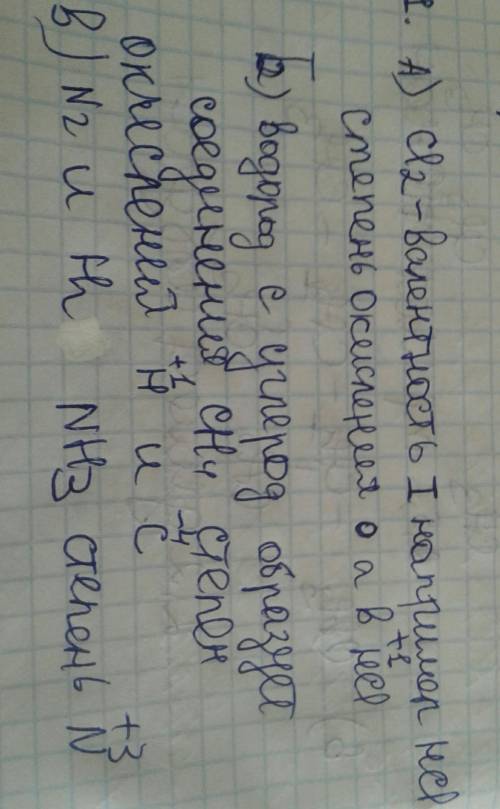 1. А) Cl2 - валентность I например HCl
степень окисления 0 а в HCl +1
Б) водород с углерод образует
соединения CH4 степен
окисрений H +1 и C -4
в) N2 и Hh NH3 степень N +3